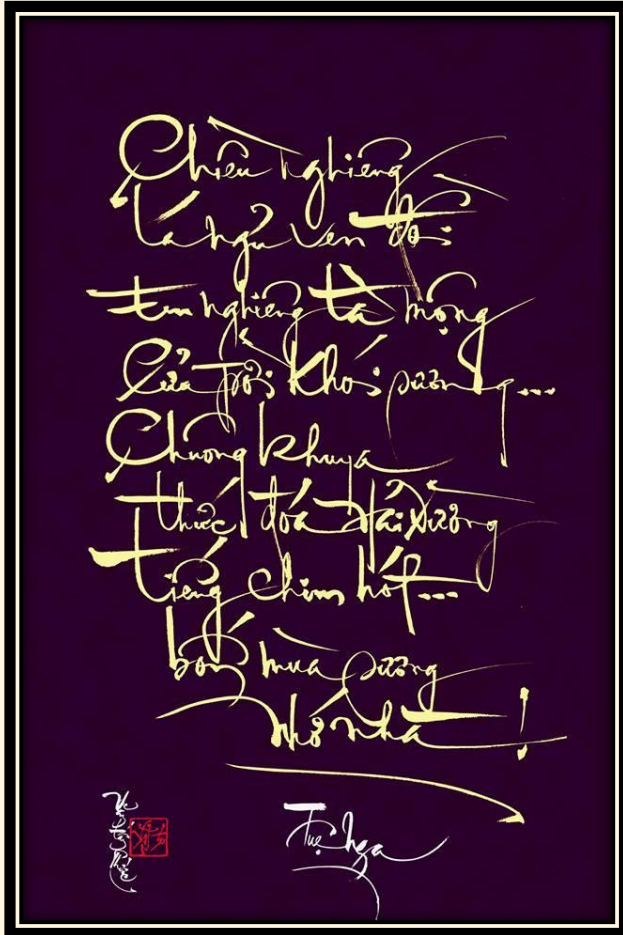 Chiều nghiêng
lá ngủ ven đồi
tìm nghiêng tà mộng
Cửa Trời khói sương...
Chuông khuya
thức đóa Hải Đường
tiếng chim hót...
bốn mùa sương
Nhớ nhà!
Tuệ Nga